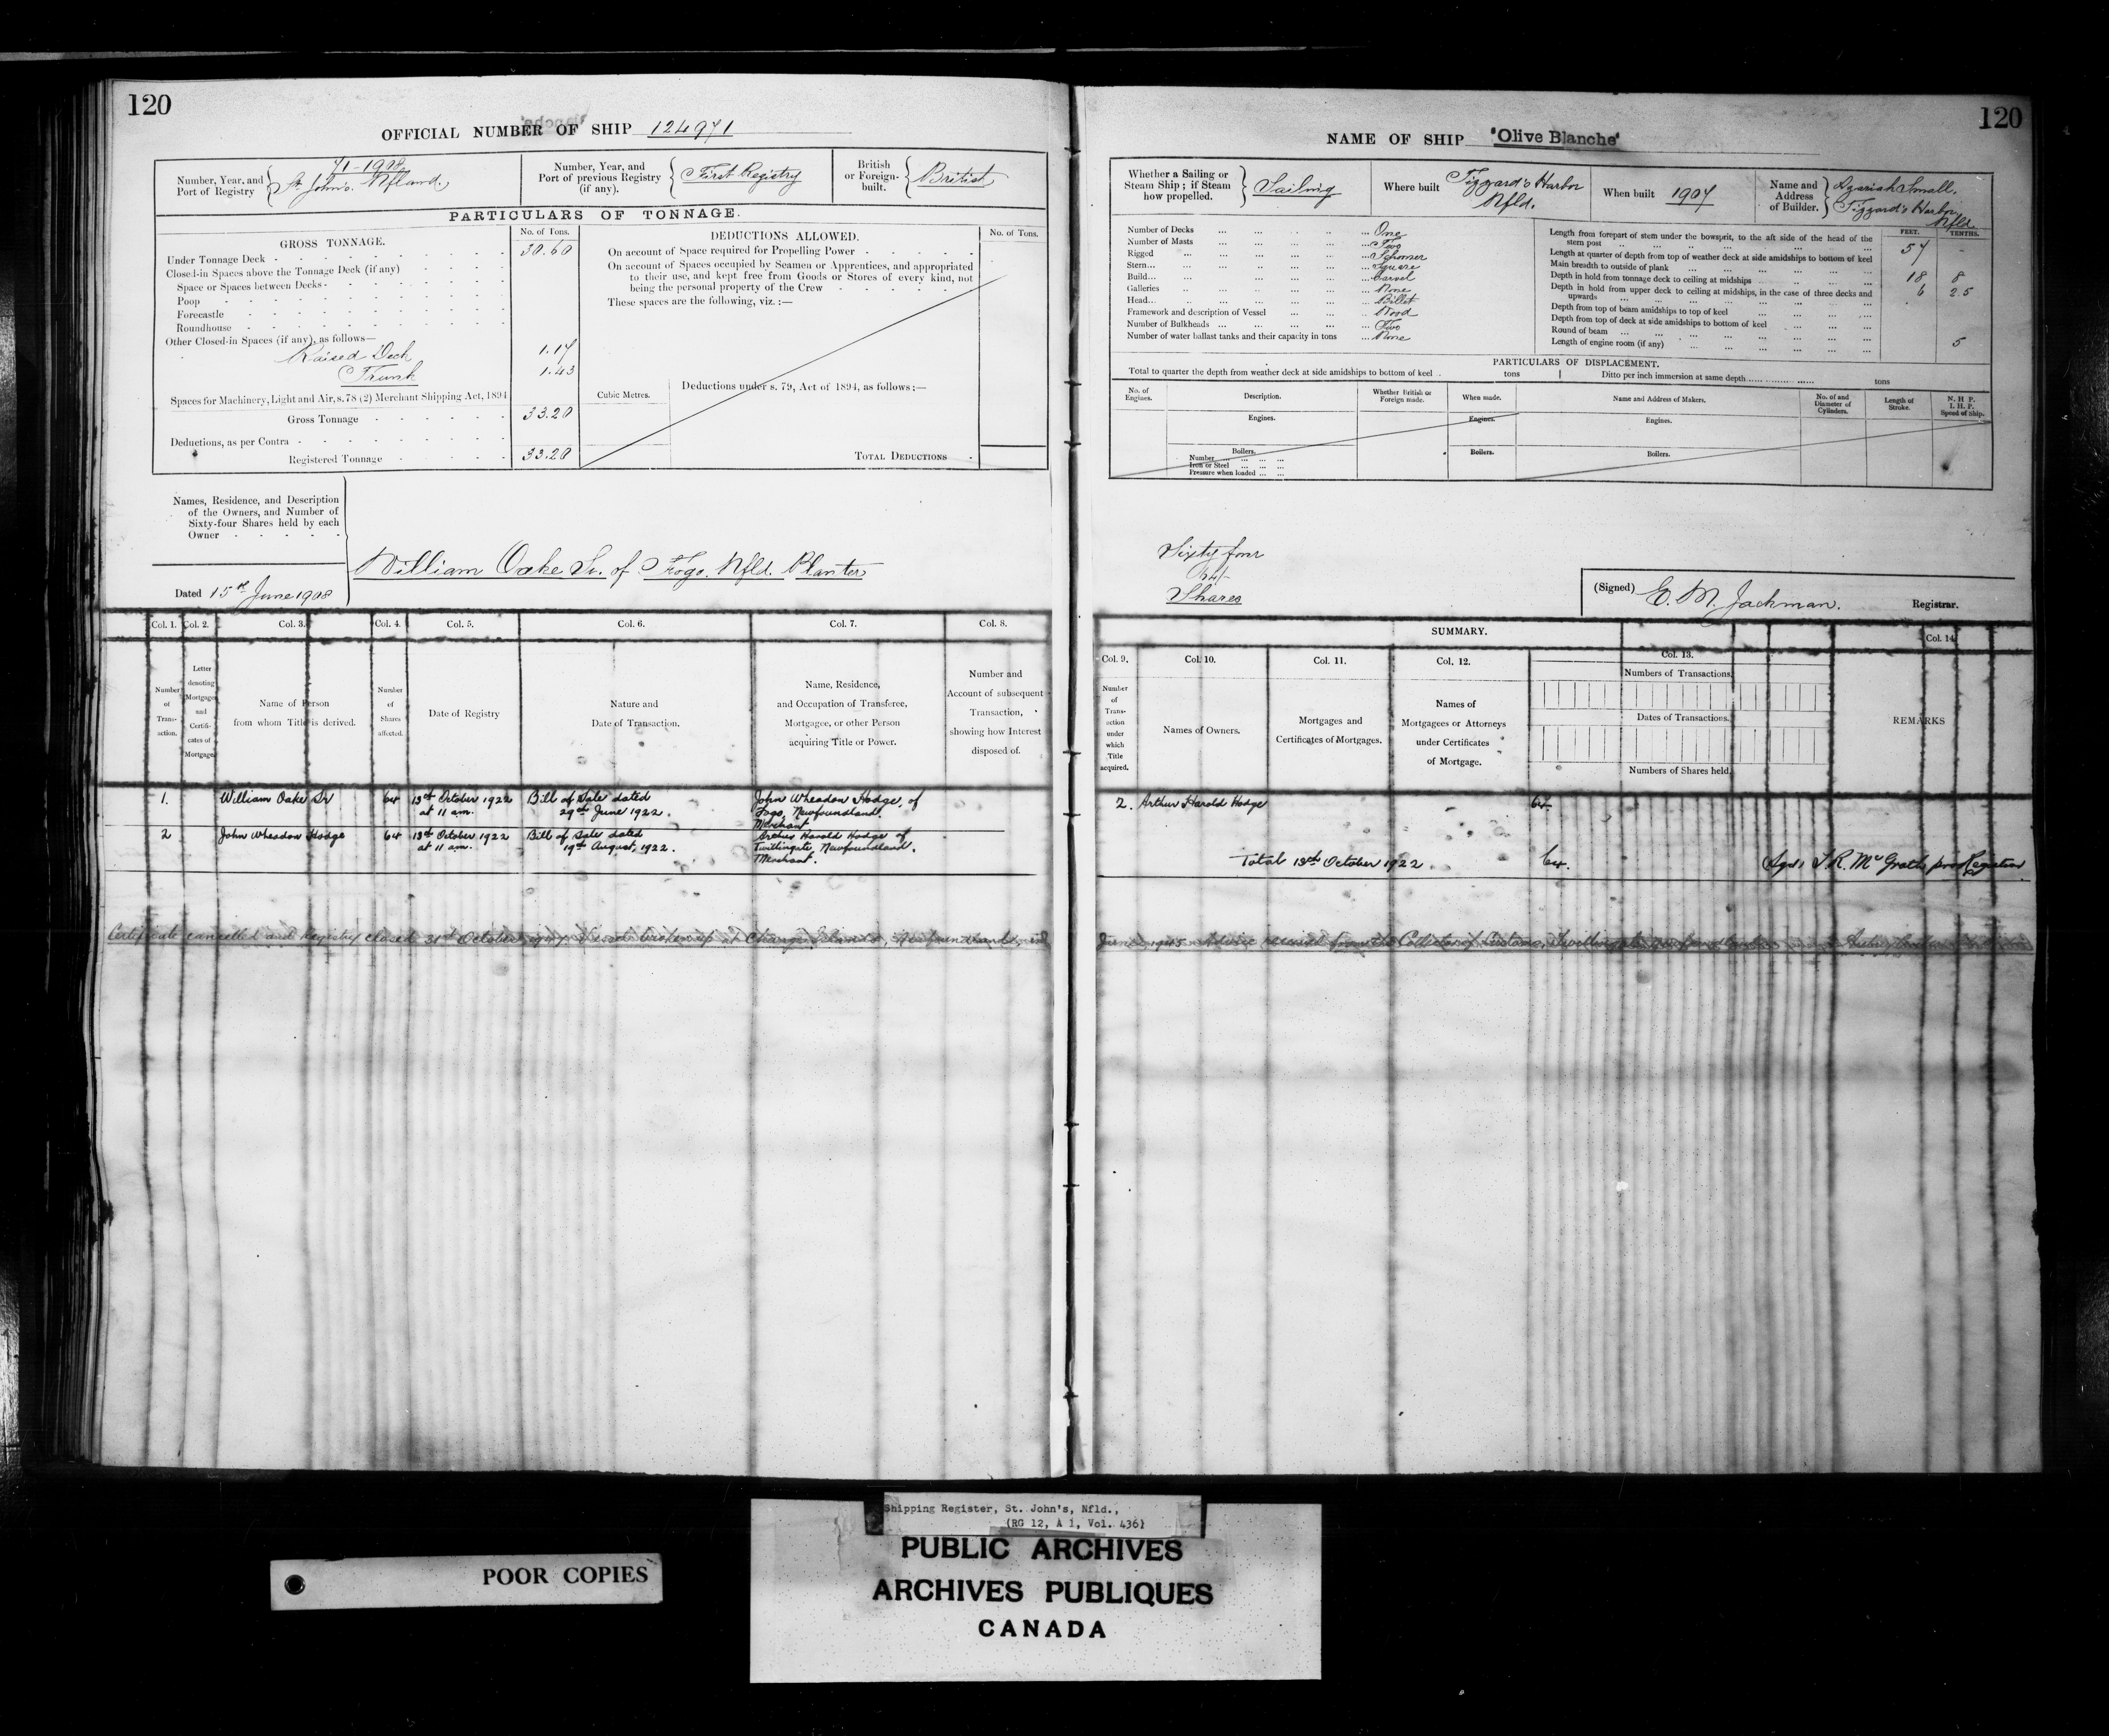 120
OFFICIAL NUMBER OF SHIP 124971
71-1908
Number, Year, and Port of Registry
St. John's. Nfland.
Number, Year, and Port of previous Registry (if any).
First Registry
British or Foreign-built.
British
PARTICULARS OF TONNAGE.
GROSS TONNAGE.
No. of Tons.
Under Tonnage Deck 30.60
Closed-in Spaces above the Tonnage Deck (if any)
Space or Spaces between Decks
Poop
Forecastle
Roundhouse
Other Closed-in Spaces (if any), as follows—
Raised Deck 1.17
Trunk 1.43
Spaces for Machinery, Light and Air, s.78 (2) Merchant Shipping Act, 1894
Gross Tonnage 33.20
Deductions, as per Contra
Registered Tonnage 33.20
DEDUCTIONS ALLOWED.
No. of Tons.
On account of Space required for Propelling Power
On account of Spaces occupied by Seamen or Apprentices, and appropriated
to their use, and kept free from Goods or Stores of every kind, not
being the personal property of the Crew
These spaces are the following, viz.:—
Cubic Metres.
Deductions under s. 79, Act of 1894, as follows:—
TOTAL DEDUCTIONS
Names, Residence, and Description
of the Owners, and Number of
Sixty-four Shares held by each
Owner
William Oake Sr. of Fogo. Nfld. Planter
Dated 15th June 1908
Col. 1. Col. 2. Col. 3. Col. 4. Col. 5. Col. 6. Col. 7. Col. 8.
Number of Transaction.
Letter denoting Mortgage and Certificates of Mortgage
Name of Person from whom Title is derived.
Number of Shares affected.
Date of Registry
Nature and Date of Transaction.
Name, Residence, and Occupation of Transferee, Mortgagee, or other Person acquiring Title or Power.
Number and Account of subsequent Transaction, showing how Interest disposed of.
1. William Oake Sr 64 13th October 1922 at 11 am. Bill of Sale dated 29th June 1922. John Wheadon Hodge, of Fogo, Newfoundland. Merchant
2 John Wheadon Hodge 64 13th October 1922 at 11 am. Bill of Sale dated 19th August, 1922. Arthur Harold Hodge of Twillingate, Newfoundland. Merchant.
Certificate cancelled and Registry closed 31st October Vessel broken up at Change Islands, Newfoundland, in
120
NAME OF SHIP "Olive Blanche"
Whether a Sailing or Steam Ship; if Steam how propelled.
Sailing
Where built
Tizzard's Harbor Nfld.
When built 1907
Name and Address of Builder.
Azariah Small,
Tizzard's Harbor
Nfld.
Number of Decks One
Number of Masts Two
Rigged Schooner
Stern Square
Build Carvel
Galleries None
Head Billet
Framework and description of Vessel Wood
Number of Bulkheads Two
Number of water ballast tanks and their capacity in tons None
FEET. TENTHS.
Length from forepart of stem under the bowsprit, to the aft side of the head of the
stern post 57 -
Length at quarter of depth from top of weather deck at side amidships to bottom of keel
Main breadth to outside of plank 18 8
Depth in hold from tonnage deck to ceiling at midships 6 25
Depth in hold from upper deck to ceiling at midships, in the case of three decks and
upwards
Depth from top of beam amidships to top of keel
Depth from top of deck at side amidships to bottom of keel
Round of beam 5
Length of engine room (if any)
PARTICULARS OF DISPLACEMENT.
Total to quarter the depth from weather deck at side amidships to bottom of keel tons
Ditto per inch immersion at same depth tons
No. of Engines.
Description.
Whether British or Foreign made.
When made.
Name and Address of Makers.
No. of and Diameter of Cylinders.
Length of Stroke.
N. H P.
I. H. P.
Speed of Ship.
Engines. Engines. Engines.
Boilers. Boilers. Boilers.
Number
Iron or Steel
Pressure when loaded
Sixty four
64/-
Shares
(Signed) E. M. Jackman. Registrar.
SUMMARY.
Col. 9. Col. 10. Col. 11. Col. 12. Col. 13. Col. 14
Number of Transaction under which Title acquired.
Names of Owners.
Mortgages and Certificates of Mortgages.
Names of Mortgagees or Attorneys under Certificates of Mortgage.
Numbers of Transactions.
Dates of Transactions.
Numbers of Shares held.
REMARKS
2. Arthur Harold Hodge 64
Total 13th October 1922. 64. Sgd. McGrath pro Registrar
Advice received from the Collector of Customs, Twillingate
Shipping Register, St. John's, Nfld.,
(RG 12, A 1, Vol. 436)
PUBLIC ARCHIVES
ARCHIVES PUBLIQUES
CANADA
POOR COPIES